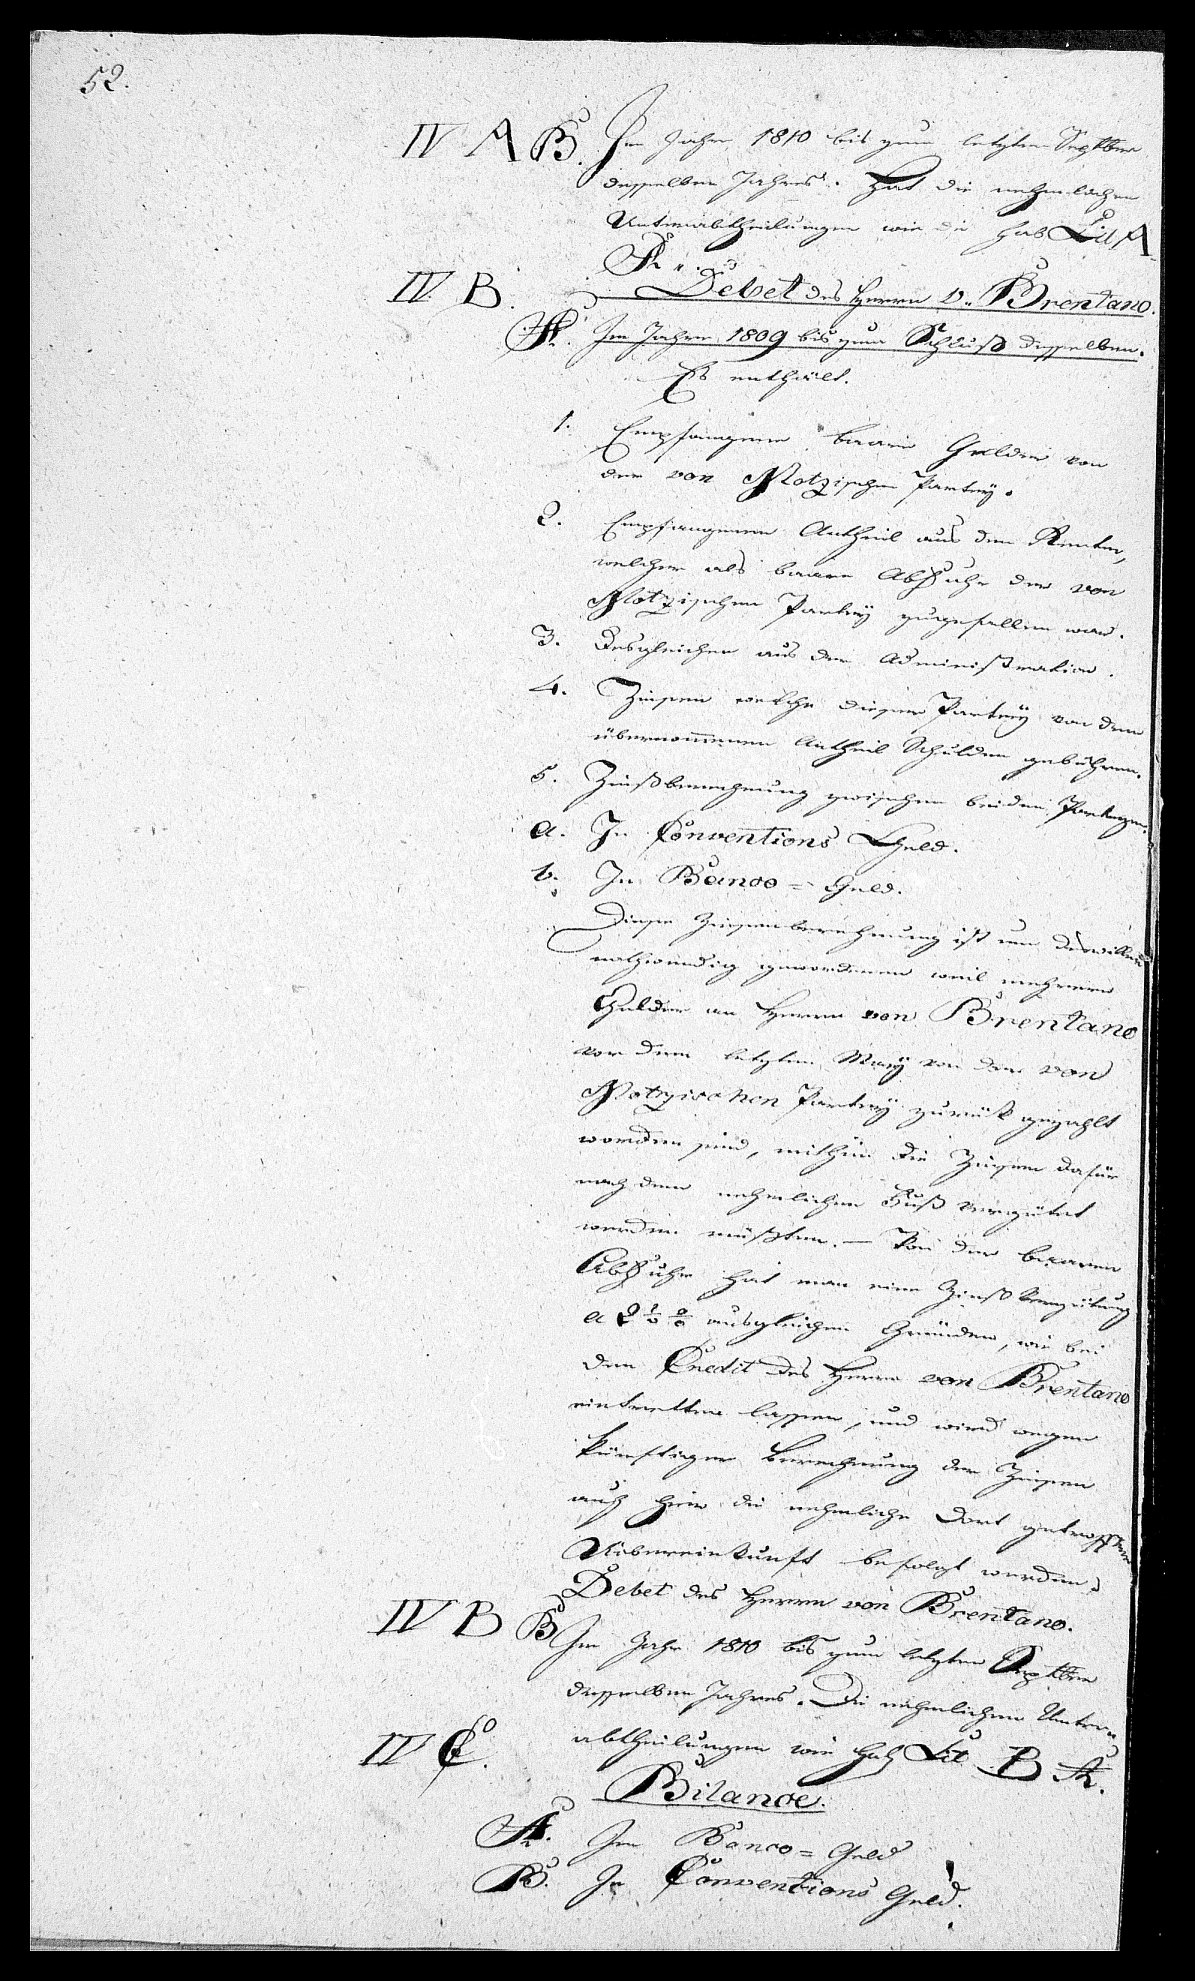 52.
IV A B. Im Jahre 1810 bis zum letzten Septber
desselben Jahres. Hat die nehmlichen
Unterabtheilungen wie die sub Lit A
A.
IV. B. Debet des Herrn v. Brentano.
A. Im Jahre 1809 bis zum Schluß desselben.
Es enthält.
1. Empfangene baare Gelder von
der von Motzischen Partey.
2. Empfangenen Antheil aus den Renten,
welcher als baare Abfuhr der von
Motzischen Partey zugefallen war.
3. Desgleichen aus der Administration.
4. Zinsen welche dieser Partey von dem
übernommenen Antheil Schulden gebühren.
5. Zinßberechnung zwischen beiden Parteyen.
a. In Conventions Geld.
b. In Banco = Geld.
Diese Zinsenberechnung ist um deswillen
nothwendig geworden weil mehrere
Gelder an Herrn von Brentano
vor dem letzten May von der von
Motzischen Partey zurück gezahlt
worden sind, mithin die Zinsen dafür
nach dem nehmlichen Fuß vergütet
werden müßten. – Von der baaren
Abfuhr hat man eine Zinß Vergütung
a 2 ½ % aus gleichen Gründen, wie bei
dem Credit des Herrn von Brentano
eintretten lassen, und wird wegen
künftiger Berechnung der Zinsen
auch hier die nehmliche dort getroffene
Uibereinkunft befolgt werden.
Debet des Herrn von Brentano.
IV B B Im Jahr 1810 bis zum letzten Septber
desselben Jahres. Die nehmlichen Unter=
abtheilungen wie sub Lit B A.
IV C.
Bilance.
A. Im Banco = Geld
B. In Conventions Geld.